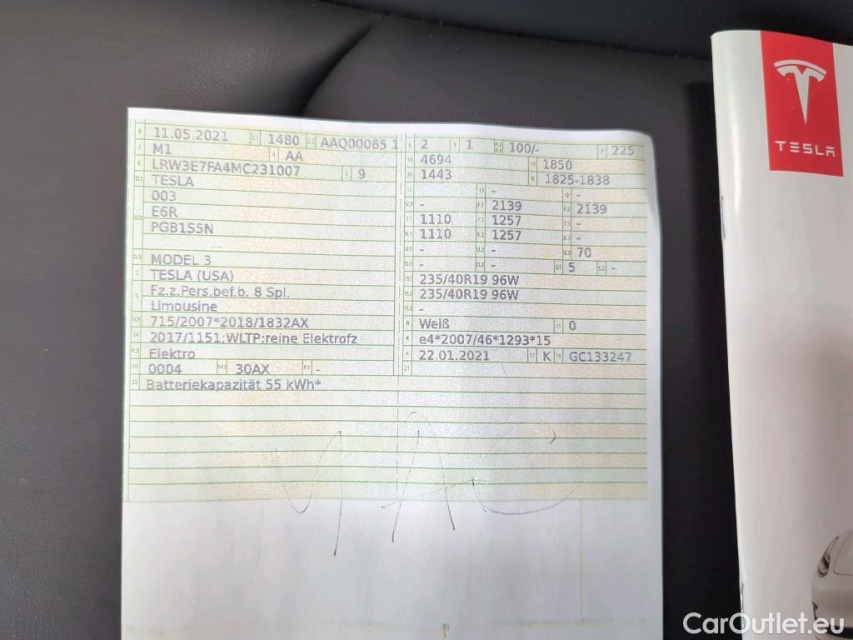 11.05.2021 1480 AAQ00065 1
M1 AA
LRW3E7FA4MC231007 9
TESLA
003
E6R
PGB1S5N
MODEL 3
TESLA (USA)
Fz.z.Pers.bef.b. 8 Spl.
Limousine
715/2007*2018/1832AX
2017/1151;WLTP;reine Elektrofz
Elektro
0004 30AX -
Batteriekapazität 55 kWh*
2 1 100/- 225
4694 1850
1443 1825-1838
- -
- 2139 2139
1110 1257 -
1110 1257 -
- - 70
- - 5 -
235/40R19 96W
235/40R19 96W
-
Weiß 0
e4*2007/46*1293*15
22.01.2021 K GC133247
TESLA
CarOutlet.eu